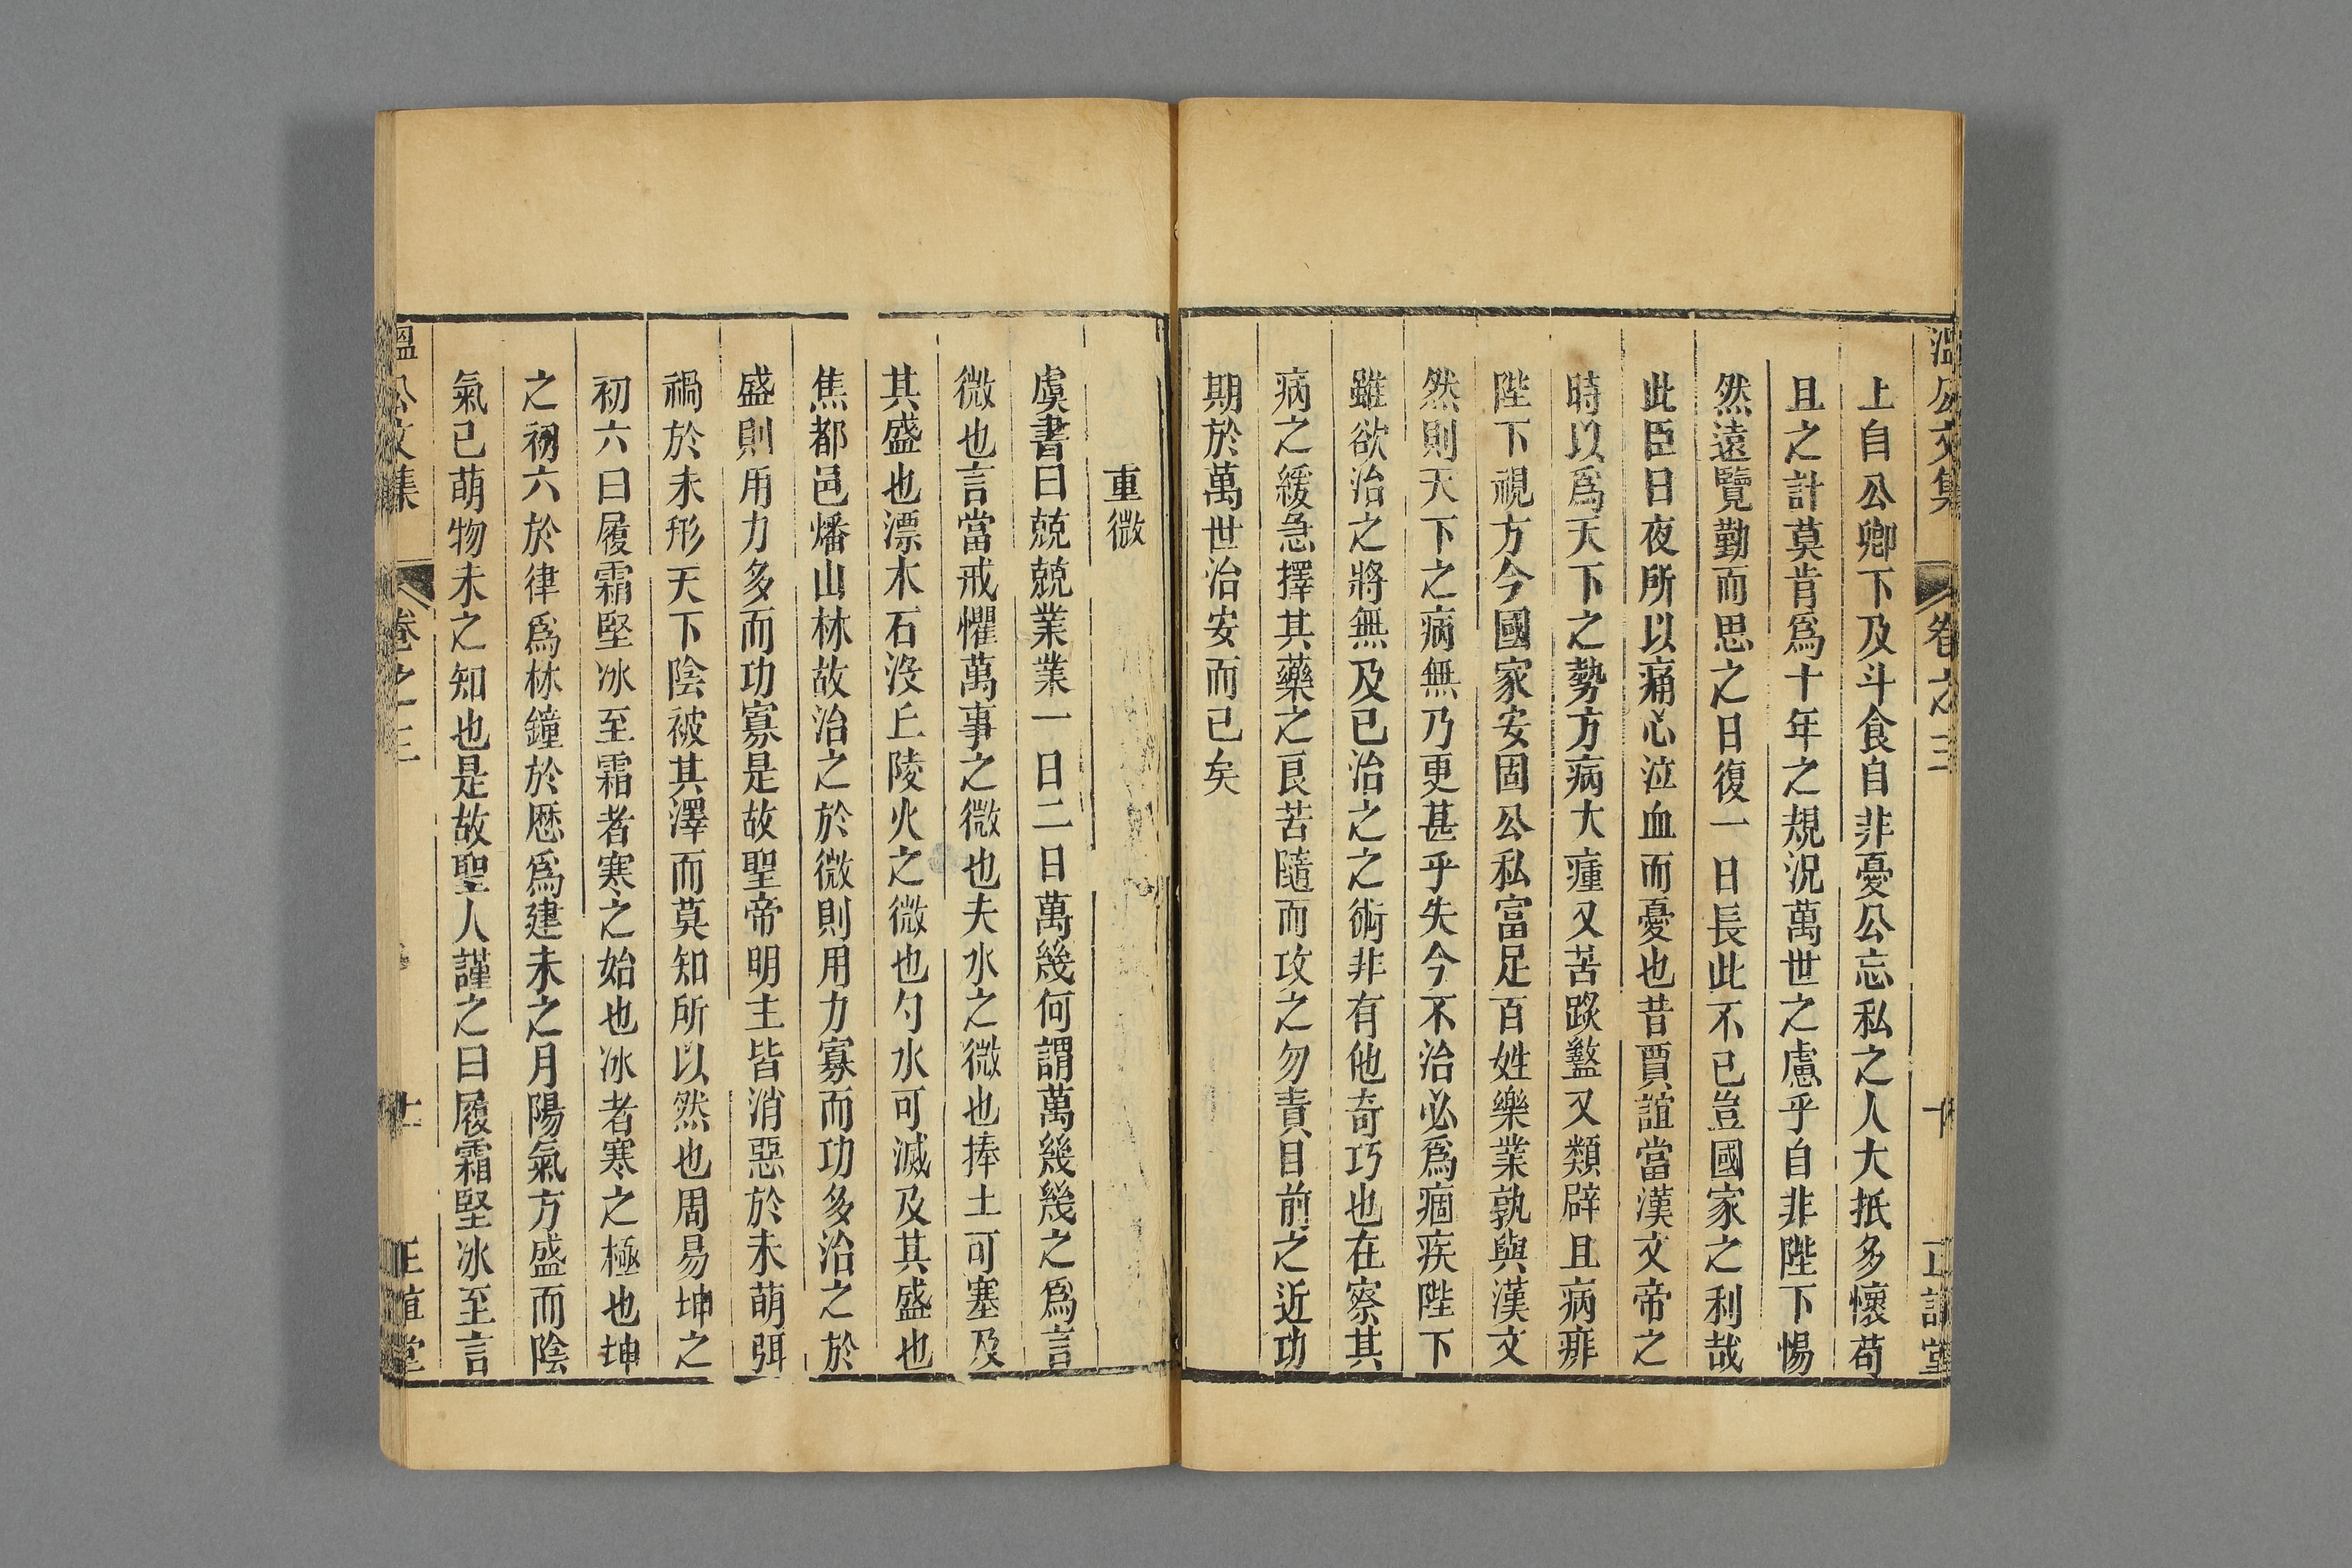 溫公文集 卷之三 十 正誼堂
上自公卿下及斗食自非憂公忘私之人大抵多懷苟
且之計莫肯爲十年之規況萬世之慮乎自非陛下惕
然遠覽勤而思之日復一日長此不已豈國家之利哉
此臣日夜所以痛心泣血而憂也昔賈誼當漢文帝之
時以爲天下之勢方病大瘇又苦䟢盭又類辟且病痱
陛下視方今國家安固公私富足百姓樂業孰與漢文
然則天下之病無乃更甚乎失今不治必爲痼疾陛下
雖欲治之將無及已治之之術非有他奇巧也在察其
病之緩急擇其藥之良苦隨而攻之勿責目前之近功
期於萬世治安而已矣
重微
虞書曰兢兢業業一日二日萬幾何謂萬幾幾之爲言
微也言當戒懼萬事之微也夫水之微也捧土可塞及
其盛也漂木石没丘陵火之微也勺水可滅及其盛也
焦都邑燔山林故治之於微則用力寡而功多治之於
盛則用力多而功寡是故聖帝明主皆消惡於未萌弭
禍於未形天下陰被其澤而莫知所以然也周易坤之
初六曰履霜堅冰至霜者寒之始也冰者寒之極也坤
之初六於律爲林鐘於曆爲建未之月陽氣方盛而陰
氣已萌物未之知也是故聖人謹之曰履霜堅冰至言
溫公文集 卷之三 十一 正誼堂